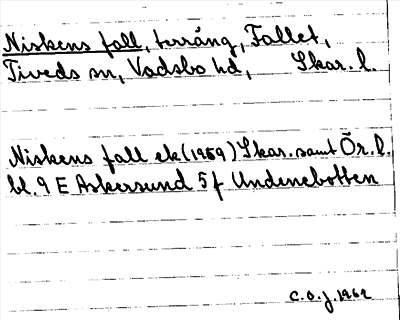 Niskens fall, terräng, Fallet,
Tiveds sn, Vadsbo hd, Skar. l.
Niskens fall ek (1959) Skar. samt Ör. l.
bl. 9 E Askersund 5 f Undenebotten
C.O.J. 1962